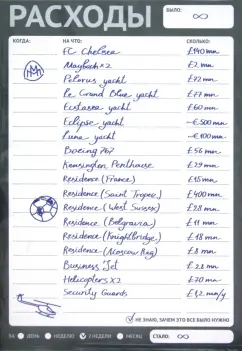 РАСХОДЫ
БЫЛО: ∞
КОГДА: НА ЧТО: СКОЛЬКО:
FC Chelsea £140 mn
Maybach x2 £2 mn
Pelorus yacht £72 mn
Le Grand Blue yacht £77 mn
Ecstasea yacht £60 mn
Eclipse yacht ~€500 mn
Luna yacht ~€100 mn
Boeing 767 £56 mn
Kensington Penthouse £29 mn
Residence (France) £15 mn
Residence (Saint Tropez) £400 mn
Residence (West Sussex) £28 mn
Residence (Belgravia) £11 mn
Residence (Knightsbridge) £18 mn
Residence (Moscow Reg) £8 mn
Business Jet £28 mn
Helicopters x2 £70 mn
Security Guards £1,2 mn/y
НЕ ЗНАЮ, ЗАЧЕМ ЭТО ВСЕ БЫЛО НУЖНО
ДЕНЬ НЕДЕЛЮ 2 НЕДЕЛИ МЕСЯЦ СТАЛО: ∞